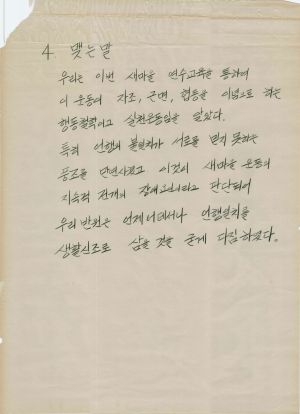 4. 맺는 말
우리는 이번 새마을 연수교육을 통하여
이 운동이 자조, 근면, 협동을 이념으로 하는
행동철학이고 실천운동임을 알았다.
특히 언행의 불일치가 서로를 믿지 못하는
풍조를 만연시켰고 이것이 새마을 운동의
지속적 전개의 장애요인이라고 판단되어
우리 반원은 언제 어데서나 언행일치를
생활신조로 삼을 것을 굳게 다짐하였다.